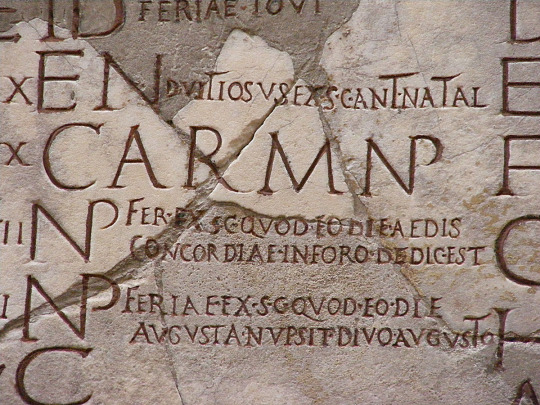 EID FERIAE·IOVI
X EN· D·VITIOSVS·EX·S·C·ANT·NATAL
X CAR MNP
II NP FER·EX·S·C·QVOD·EO·DIE·AEDIS
CONCORDIAE·IN·FORO·DEDIC·EST
I NP FERIAE·EX·S·C·QVOD·EO·DIE
AVGVSTA·NVPSIT·DIVO·AVGVSTO
C